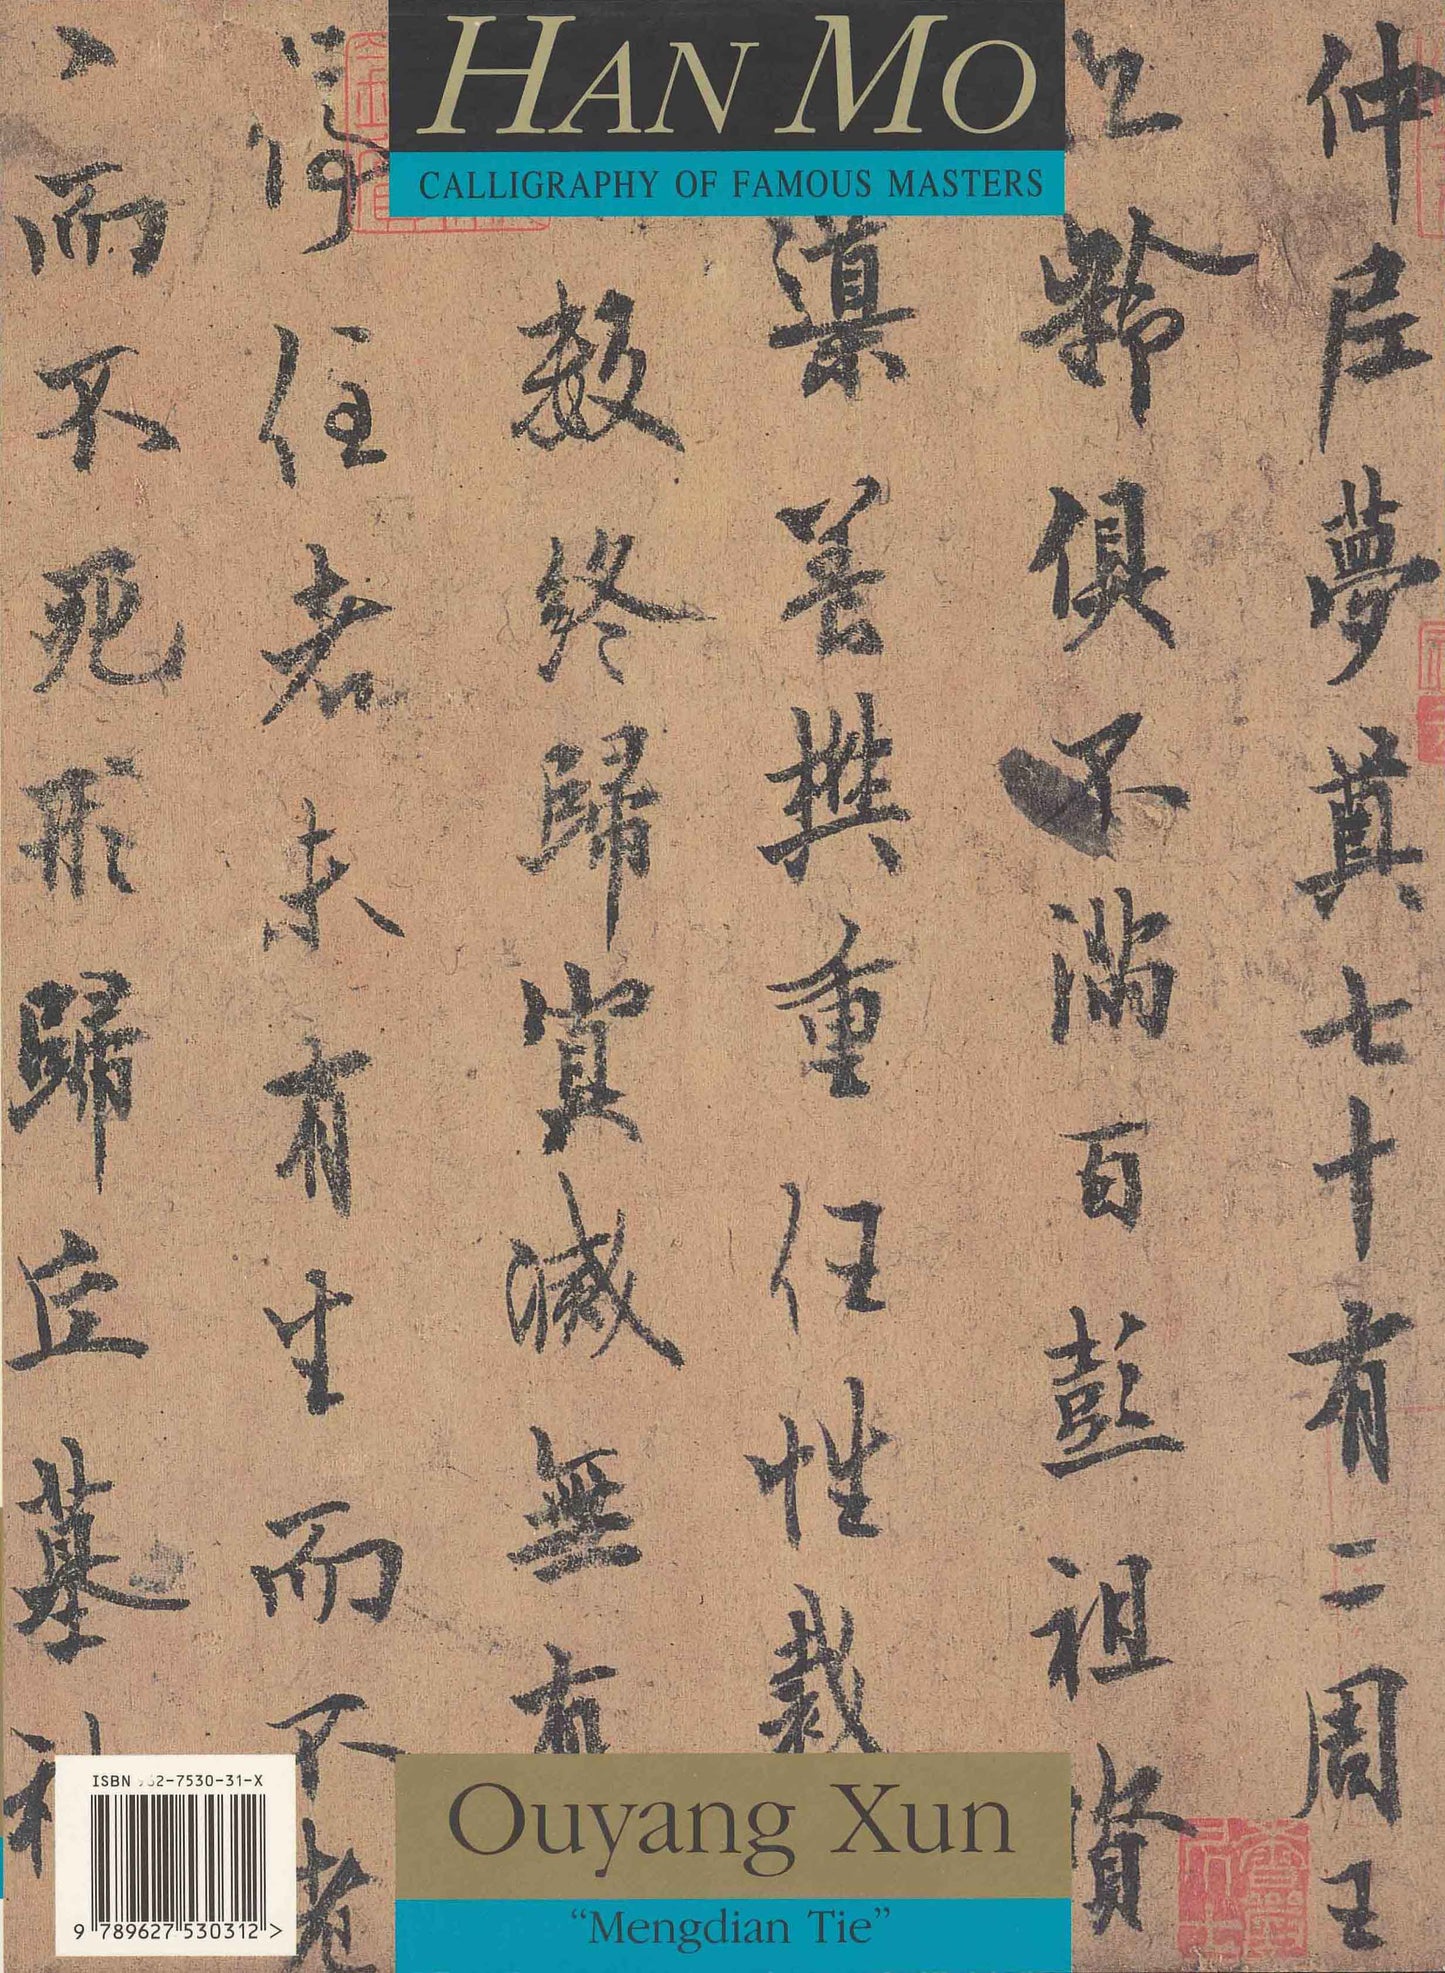 HAN MO
CALLIGRAPHY OF FAMOUS MASTERS
仲尼夢奠七十有二周王
齡俱不滿百彭祖資
滇善撰重任性裁
數終歸冥滅無有
得住者未有生而不老
〻而不死形歸丘墓神
ISBN 962-7530-31-X
9 789627 530312 >
Ouyang Xun
“Mengdian Tie”